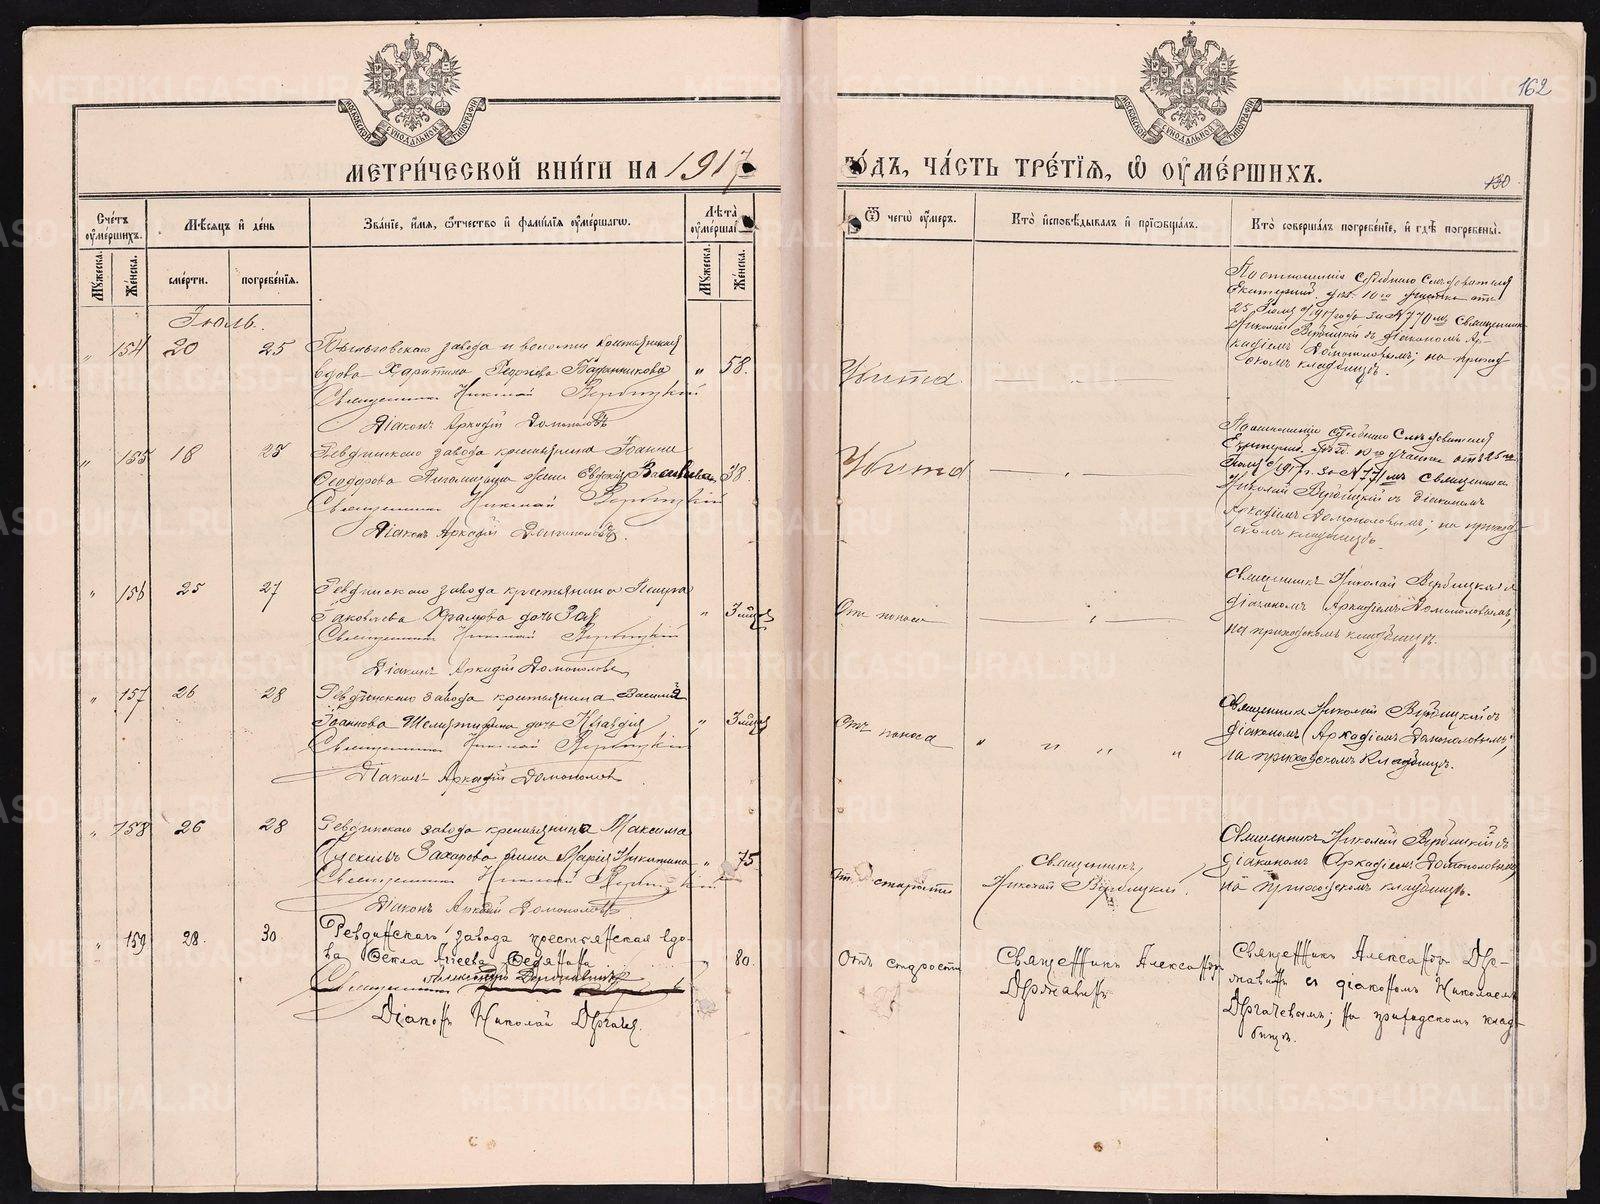 162
МОСКОВСКОЙ СѴНОДАЛЬНОЙ ТИПОГРАФІИ
МОСКОВСКОЙ СѴНОДАЛЬНОЙ ТИПОГРАФІИ
МЕТРИ́ЧЕСКОЙ КНИ́ГИ НА 1917
ГО́ДЪ, ЧА́СТЬ ТРЕ́ТІЯ, Ѡ ОУМЕ́РШИХЪ.
130
Сче́тъ оуме́ршихъ.
Мѣ́сяцъ и де́нь
Зва́ніе, и́мя, ѻ́тчество и фами́лія оуме́ршагѡ.
Лѣта̀ оуме́ршаг
Ѿ чегѡ̀ оу́меръ.
Кто̀ исповѣ́дывалъ и пріѡбща́лъ.
Кто̀ соверша́лъ погребе́ніе, и гдѣ̀ погребены̀.
Мужеска.
Женска.
сме́рти.
погребе́нія.
Мужеска.
Женска.
Іюль.
" 154 20 25
вдова Харитина Баранникова " 58.
Священникъ Николай Вербицкій
Діаконъ Аркадій Домополовъ
Убита
По отношенію Судебнаго Слѣдователя
Екатеринб. уѣз. 10го участка отъ
25 Іюля 1917 года за № 770мъ Священникъ
Николай Вербицкій съ діакономъ Ар-
кадіемъ Домополовымъ; на приход
скомъ кладбищѣ.
" 155 18 25 Ревдинскаго завода крестьянина Іоанна
Ѳеодорова жена Евдокія Васильева 38.
Священникъ Николай Вербицкій
Діаконъ Аркадій Домополовъ.
Убита
По отношенію Судебнаго Слѣдователя
Екатеринб. уѣзд. 10го участка отъ 25го
Іюля 1917 г. за № 771мъ Священникъ
Николай Вербицкій съ діакономъ
Аркадіемъ Домополовымъ; на приход-
скомъ кладбищѣ.
" 156 25 27 Ревдинскаго завода крестьянина Петра
Іаковлева Храмцова дочь Зоя " 3 мѣся
Священникъ Николай Вербицкій
Діаконъ Аркадій Домополовъ
Отъ поноса
Священникъ Николай Вербицкій съ
діакономъ Аркадіемъ Домополовымъ,
на приходскомъ кладбищѣ.
" 157 26 28 Ревдинскаго завода крестьянина Василія
Іоаннова дочь Клавдія " 3 мѣся
Священникъ Николай Вербицкій
Діаконъ Аркадій Домополовъ
Отъ поноса " " " "
Священникъ Николай Вербицкій съ
діакономъ Аркадіемъ Домополовымъ,
на приходскомъ кладбищѣ.
" 158 26 28 Ревдинскаго завода крестьянина Максима
Алексѣева Захарова жена Марія Никитина " 75
Священникъ Николай Вербицкій
Діаконъ Аркадій Домополовъ
Отъ старости
Священникъ
Николай Вербицкій.
Священникъ Николай Вербицкій съ
діакономъ Аркадіемъ Домополовымъ,
на приходскомъ кладбищѣ.
" 159 28. 30 Ревдинскаго завода крестьянская вдо-
ва Ѳекла " 80.
Священникъ Александръ Державинъ
Діаконъ Николай Дергачевъ.
Отъ старости
Священникъ Александръ
Державинъ
Священникъ Александръ Дер-
жавинъ съ діакономъ Николаемъ
Дергачевымъ; на приходскомъ клад-
бищѣ.
METRIKI.GASO-URAL.RU